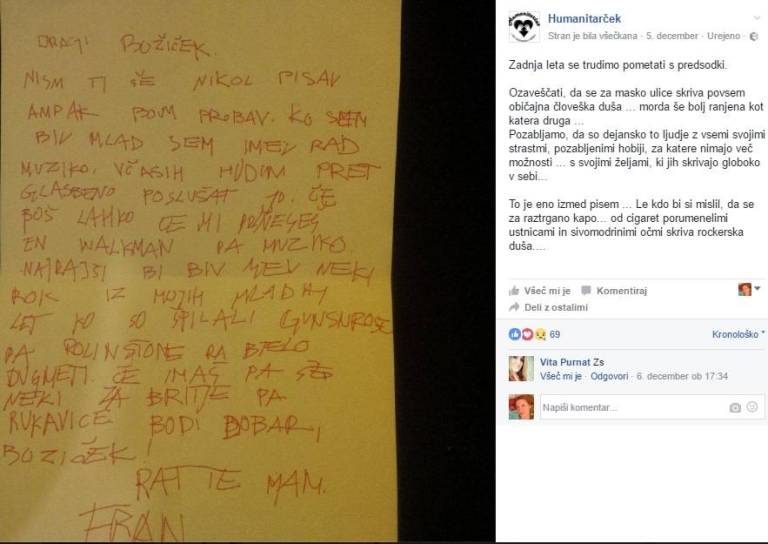 DRAGI BOŽIČEK.
NISM TI ŠE NIKOL PISAV
AMPAK BOM PROBAV. KO SEM
BIV MLAD SEM IMEV RAD
MUZIKO. VČASIH HODIM PRET
GLASBENO POSLUŠAT JO. ČE
BOŠ LAHKO ČE MI PRNESEŠ
EN WALKMAN PA MUZIKO.
NAJRAJŠI BI BIV MEV NEKI
ROK IZ MOJIH MLADIH
LET KO SO ŠPILALI GUNSNROSE
PA ROLINSTONE PA BJELO
DUGMETI. ČE IMAŠ PA ŠE
NEKI ZA BRITJE PA
RUKAVICE BODI DOBAR,
BOZIČEK!
RAT TE MAM.
FRAN
Humanitarček
Stran je bila všečkana · 5. december · Urejeno ·
Zadnja leta se trudimo pometati s predsodki.
Ozaveščati, da se za masko ulice skriva povsem
običajna človeška duša ... morda še bolj ranjena kot
katera druga ...
Pozabljamo, da so dejansko to ljudje z vsemi svojimi
strastmi, pozabljenimi hobiji, za katere nimajo več
možnosti ... s svojimi željami, ki jih skrivajo globoko
v sebi...
To je eno izmed pisem ... Le kdo bi si mislil, da se
za raztrgano kapo... od cigaret porumenelimi
ustnicami in sivomodrinimi očmi skriva rockerska
duša....
Všeč mi je Komentiraj
Deli z ostalimi
69 Kronološko
Vita Purnat Zs
Všeč mi je · Odgovori · 6. december ob 17:34
Napiši komentar...